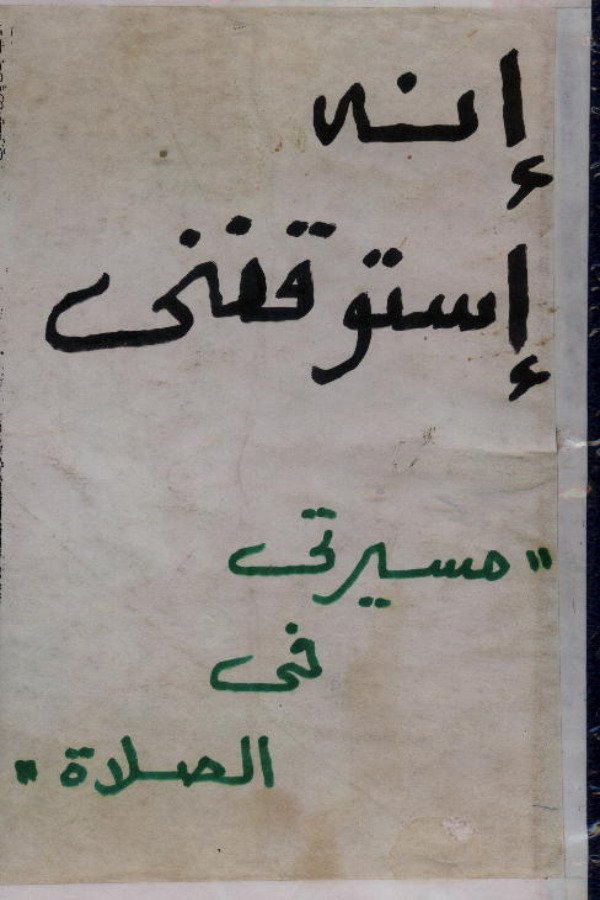 إنه
إستوقفنى
" مسيرتى
فى
الصلاة "